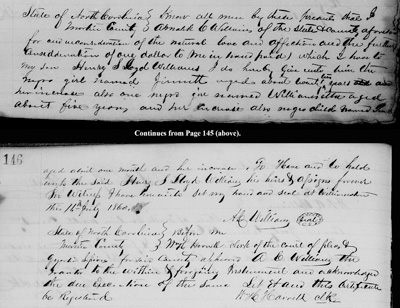 State of North Carolina } Know all men by these presents that I
County } A C Williams of the State & County aforesaid
for and in consideration of the natural love and affection and the further
consideration of one dollar to me in hand paid which I have to
my son Henry S Lloyd Williams I do hereby Give unto him the
negro girl named aged about twenty years and
her increase also one negro girl named aged
about five years, and her increase also negro child named
Continues from Page 145 (above).
146
aged about one month and her increase To Have and to hold
unto the said Henry S Lloyd Williams his heirs & assigns forever
In Witness I have hereunto set my hand and seal at
the 12th July 1860
A C Williams (Seal)
State of North Carolina } Before Me
County } Clerk of the court of pleas &
for said County appeared A C Williams the
to the within & foregoing Instrument and acknowledged
the due execution of the same Let it and this Certificate
be Registered
Clk